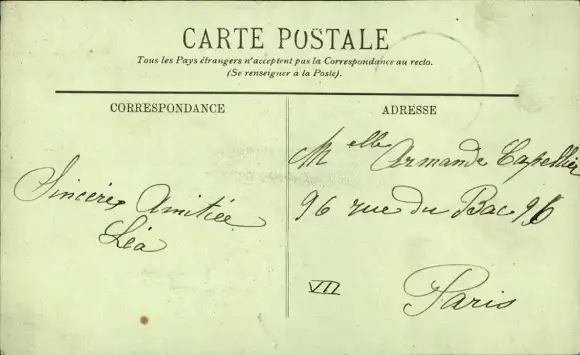 CARTE POSTALE
Tous les Pays étrangers n'acceptent pas la Correspondance au recto.
(Se renseigner à la Poste).
CORRESPONDANCE
Sincères Amitiée
Léa
ADRESSE
Melle Armande Capellier
96 rue du Bac 96
VII
Paris